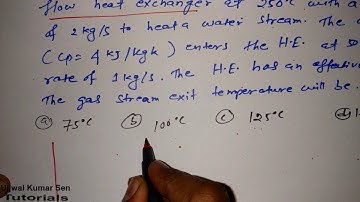 flow heat exchanger at 250°C with a
of 2 kg/s to heat a water stream. The
(Cp = 4 KJ/kgk) enters the H.E. at 50
rate of 1 kg/s. The H.E. has an effective
The gas stream exit temperature will be.
(a) 75°C (b) 100°C (c) 125°C (d) 1
Ujjwal Kumar Sen
Tutorials